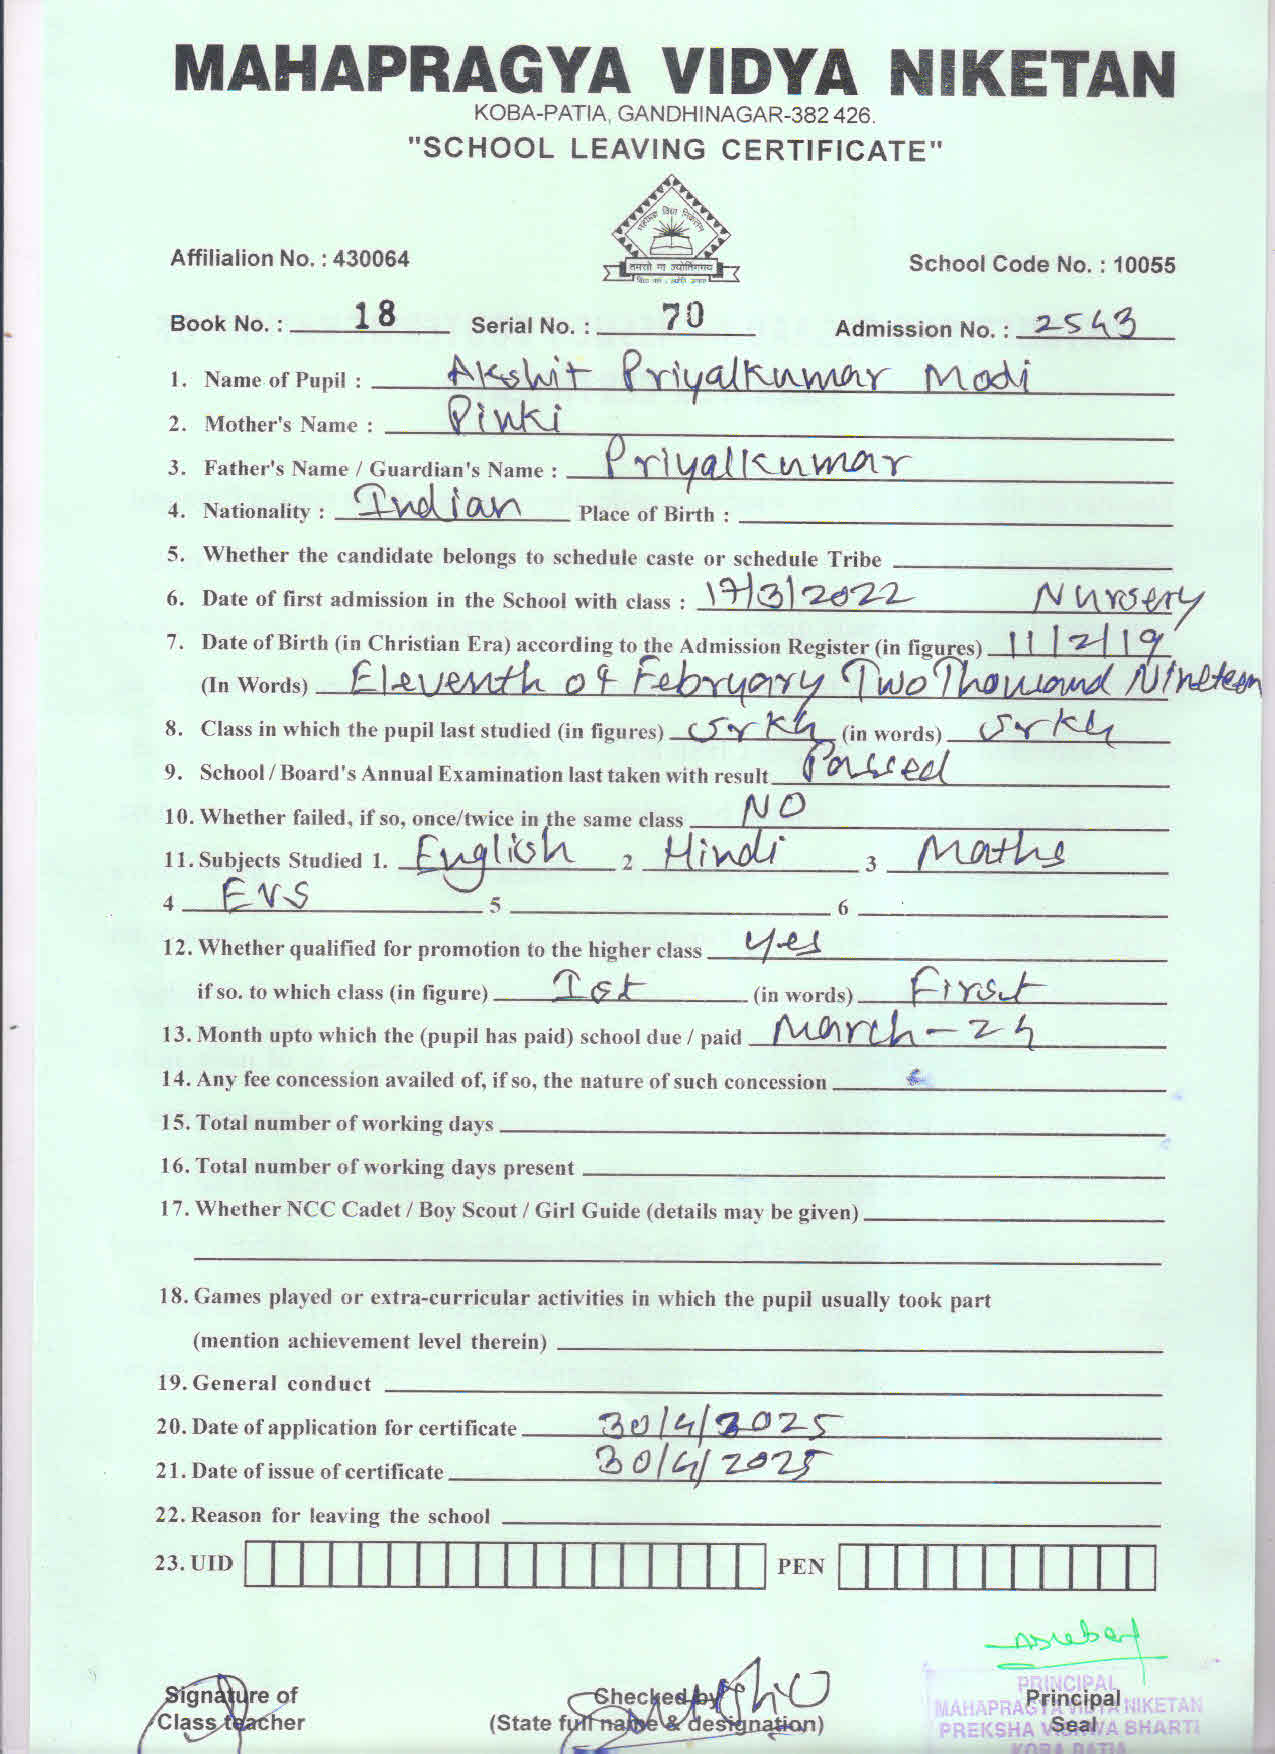 MAHAPRAGYA VIDYA NIKETAN
KOBA-PATIA, GANDHINAGAR-382 426.
"SCHOOL LEAVING CERTIFICATE"
महाप्रज्ञ विद्या निकेतन
तमसो मा ज्योतिर्गमय
Affilialion No. : 430064
School Code No. : 10055
Book No. : 18 Serial No. : 70 Admission No. : 2543
1. Name of Pupil : Akshit Priyalkumar Modi
2. Mother's Name : Pinki
3. Father's Name / Guardian's Name : Priyalkumar
4. Nationality : Indian Place of Birth :
5. Whether the candidate belongs to schedule caste or schedule Tribe
6. Date of first admission in the School with class : 17/3/2022 Nursery
7. Date of Birth (in Christian Era) according to the Admission Register (in figures) 11/2/19
(In Words) Eleventh of Febryary Two Thousand Nineteen
8. Class in which the pupil last studied (in figures) SrKG (in words) SrKG
9. School / Board's Annual Examination last taken with result Passed
10. Whether failed, if so, once/twice in the same class NO
11. Subjects Studied 1. English 2 Hindi 3 Maths
4 EVS 5 6
12. Whether qualified for promotion to the higher class yes
if so. to which class (in figure) Ist (in words) First
13. Month upto which the (pupil has paid) school due / paid March-25
14. Any fee concession availed of, if so, the nature of such concession
15. Total number of working days
16. Total number of working days present
17. Whether NCC Cadet / Boy Scout / Girl Guide (details may be given)
18. Games played or extra-curricular activities in which the pupil usually took part
(mention achievement level therein)
19. General conduct
20. Date of application for certificate 30/4/2025
21. Date of issue of certificate 30/4/2025
22. Reason for leaving the school
23. UID PEN
Signature of
Class teacher
Checked by
(State full name & designation)
Principal
Seal
PRINCIPAL
MAHAPRAGYA VIDYA NIKETAN
PREKSHA VISHWA BHARTI
KOBA PATIA